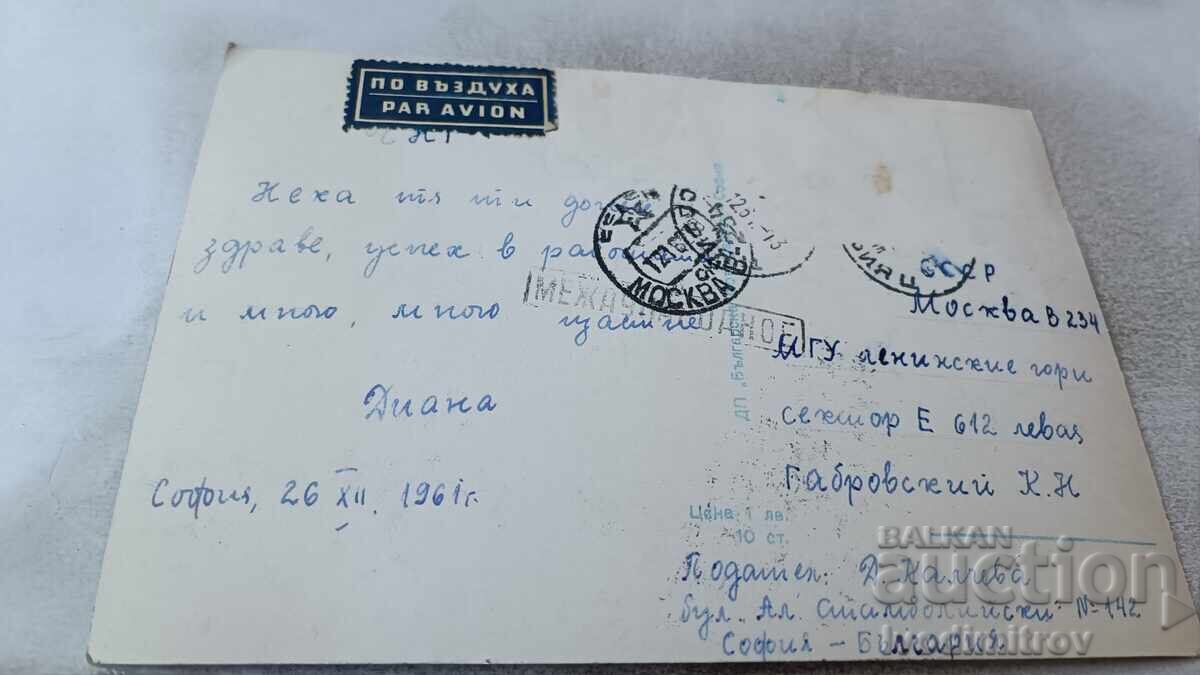 ПО ВЪЗДУХА
PAR AVION
Нека тя ти донесе
здраве, успех в работата
и много, много щастие
Диана
София, 26 XII 1961 г.
МЕЖДУНАРОДНОЕ
МОСКВА
СССР
Москва В 234
МГУ Ленинские гори
сектор Е 612 левая
Габровский К. Н
Цена 1 лв.
10 ст.
ДП „Българск
Подател: Д.
бул. Ал. Стамболийски № 142
София – България
BALKAN
auction